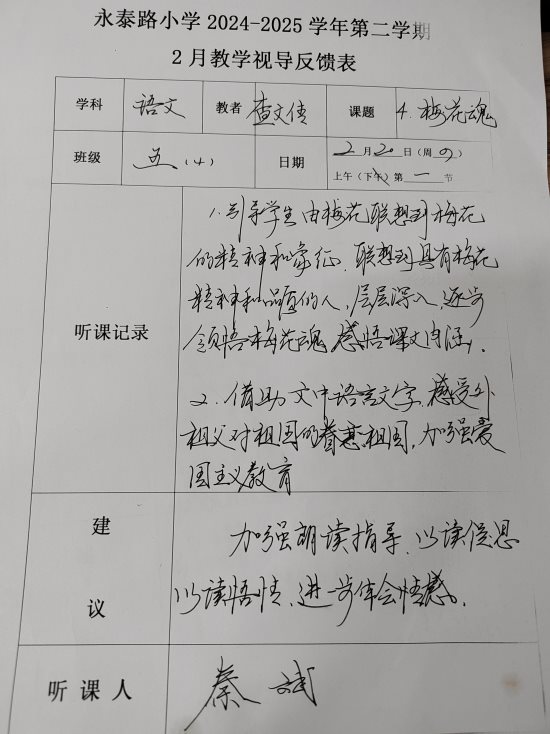 永泰路小学 2024-2025 学年第二学期
2 月教学视导反馈表
学科 语文 教者 查文倩 课题 4. 梅花魂
班级 五（4） 日期 2 月 20 日（周四）
上午（下午）第 一 节
听课记录
1. 引导学生由梅花联想到梅花
的精神和象征、联想到具有梅花
精神和品质的人，层层深入，逐步
领悟梅花魂，感悟课文内涵。
2. 借助文中语言文字，感受外
祖父对祖国的眷恋祖国，加强爱
国主义教育
建
议
加强朗读指导、以读促思
以读悟情、进一步体会情感。
听课人 秦斌